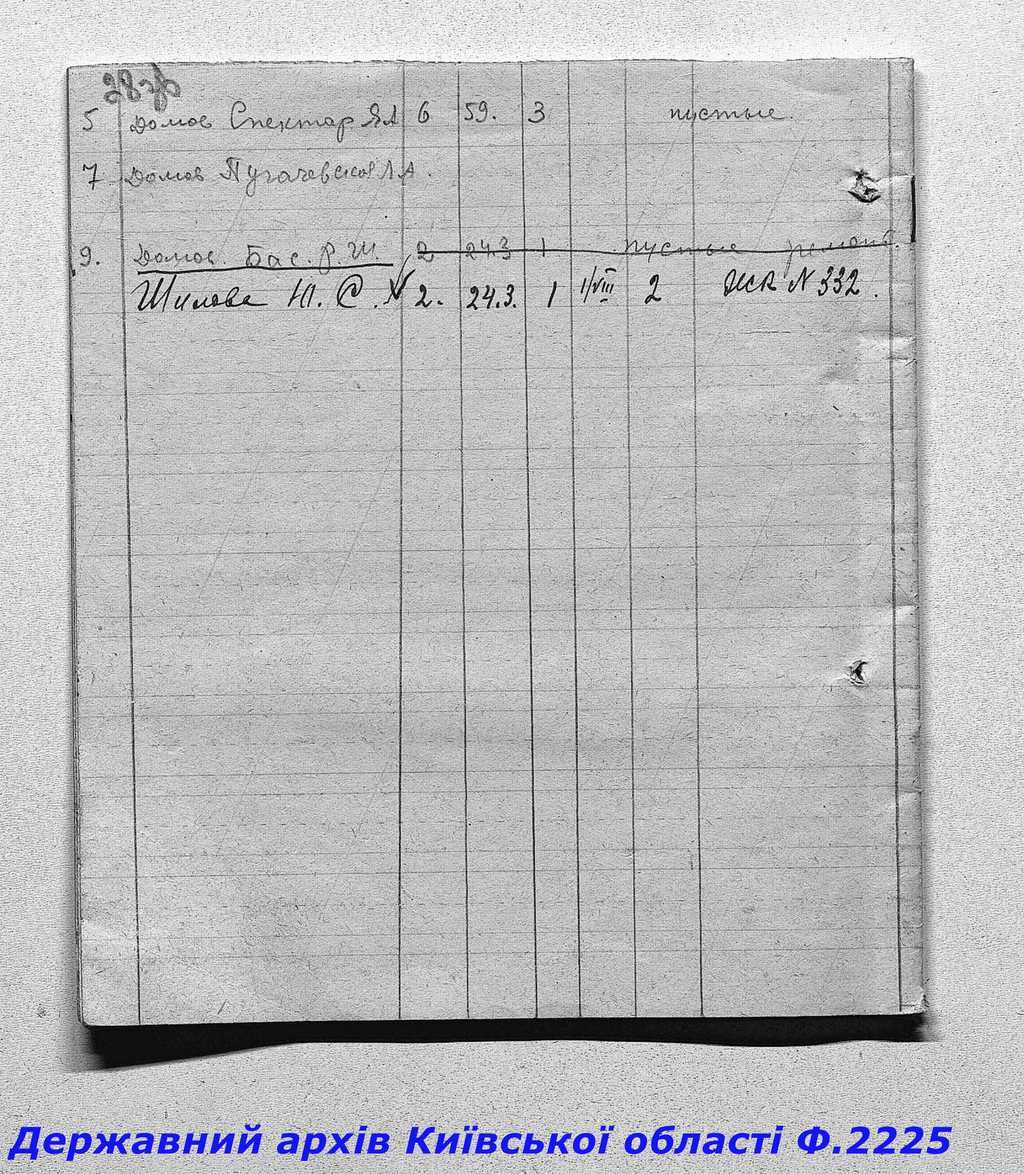 28
5 Домов Спектор ЯА 6 59. 3 пустые.
7 Домов Пугачевской А А.
9. Домов. Бас. Р. Ш. 2 24.3 1 пустые ремонт.
Шилова Ю. С. 2. 24.3. 1 1/VIII 2 № 332.
Державний архів Київської області Ф.2225